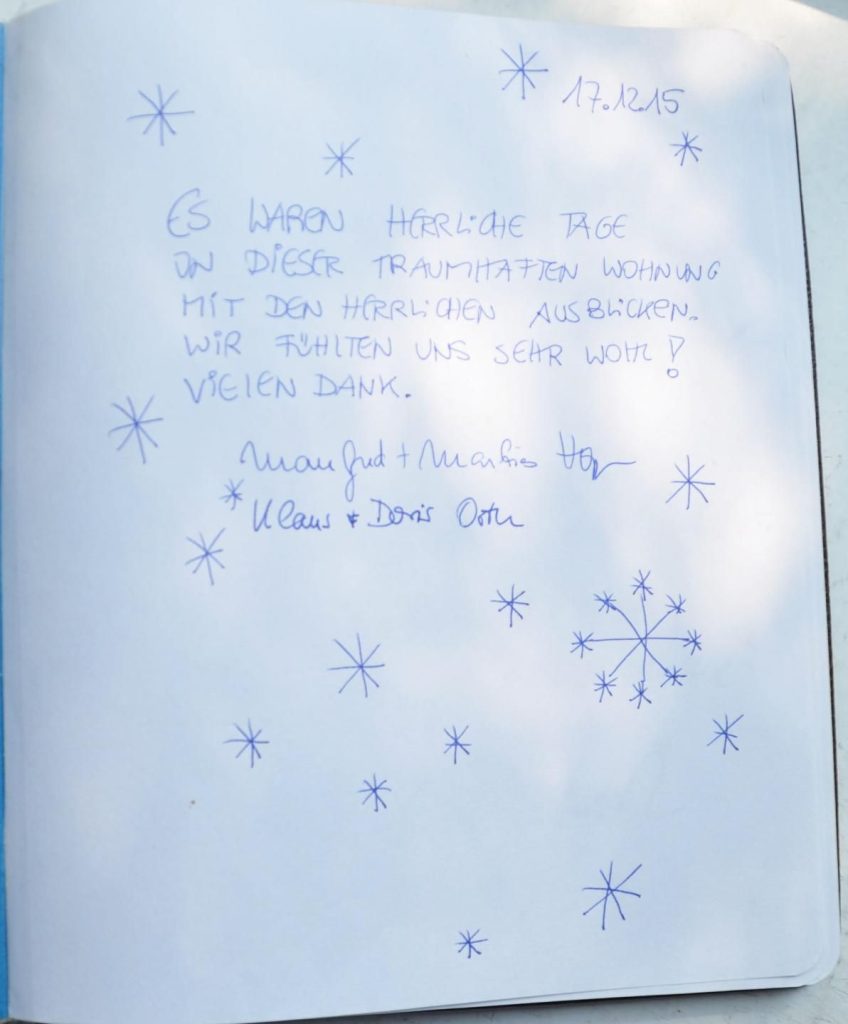 17.12.15
ES WAREN HERRLICHE TAGE
IN DIESER TRAUMHAFTEN WOHNUNG
MIT DEN HERRLICHEN AUSBLICKEN.
WIR FÜHLTEN UNS SEHR WOHL!
VIELEN DANK.
Manfred +
Klaus + Doris Orth